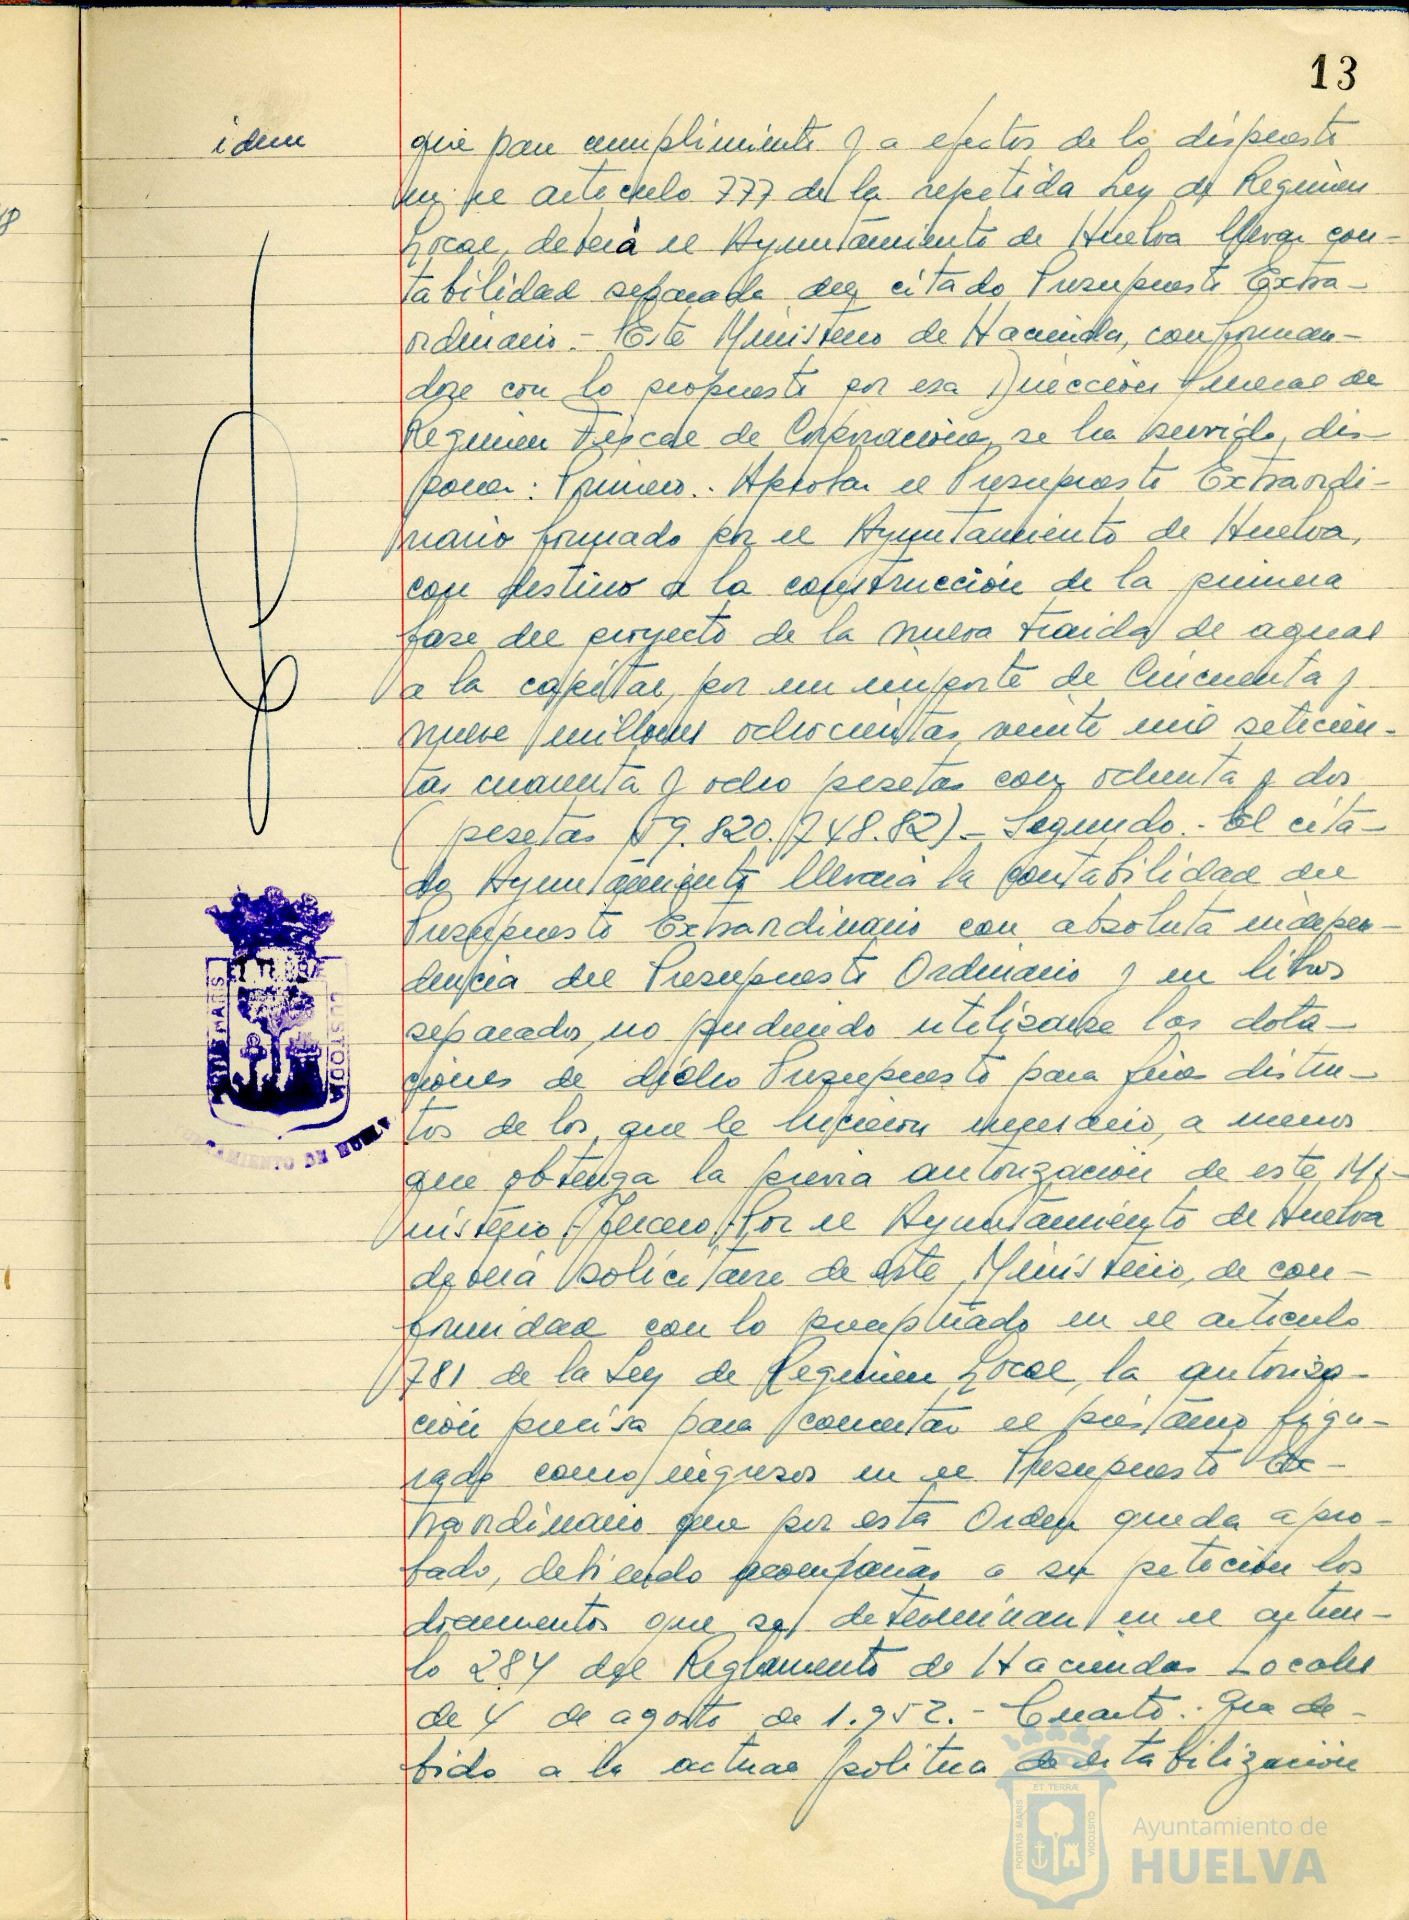 13
idem
que para cumplimiento y a efectos de lo dispuesto
en el articulo 777 de la repetida Ley de Regimen
Local, deberá el Ayuntamiento de Huelva llevar con-
tabilidad separada del citado Presupuesto Extra-
ordinario.- Este Ministerio de Hacienda, conforman-
dose con lo propuesto por esa Dirección General de
Regimen Fiscal de Corporaciones, se ha servido, dis-
poner: Primero.- Aprobar el Presupuesto Extraordi-
nario formado por el Ayuntamiento de Huelva,
con destino a la construcción de la primera
fase del proyecto de la nueva traida de aguas
a la capital, por un importe de Cincuenta y
nueve millones ochocientas veinte mil setecien-
tas cuarenta y ocho pesetas con ochenta y dos
(pesetas 59.820.748.82)- Segundo.- El cita-
do Ayuntamiento llevará la contabilidad del
Presupuesto Extraordinario con absoluta indepen-
dencia del Presupuesto Ordinario y en libros
separados, no pudiendo utilizarse las dota-
ciones de dicho Presupuesto para fines distin-
tos de los que le hicieron necesario, a menos
que obtenga la previa autorización de este Mi-
nisterio.- Tercero.- Por el Ayuntamiento de Huelva
deberá solicitarse de este Ministerio, de con-
formidad con lo preceptuado en el articulo
781 de la Ley de Regimen Local, la autoriza-
ción precisa para concertar el préstamo figu-
rado como ingresos en el Presupuesto Ex-
traordinario que por esta Orden queda apro-
bado, debiendo acompañar a su petición los
documentos que se determinan en el articu-
lo 284 del Reglamento de Haciendas Locales
de 4 de agosto de 1.952.- Cuarto.- Que de-
bido a la actual politica de estabilización
PORTUS MARIS
ET TERRÆ
CUSTODIA
TAMIENTO DE HUELV
PORTUS MARIS
ET TERRÆ
CUSTODIA
Ayuntamiento de
HUELVA